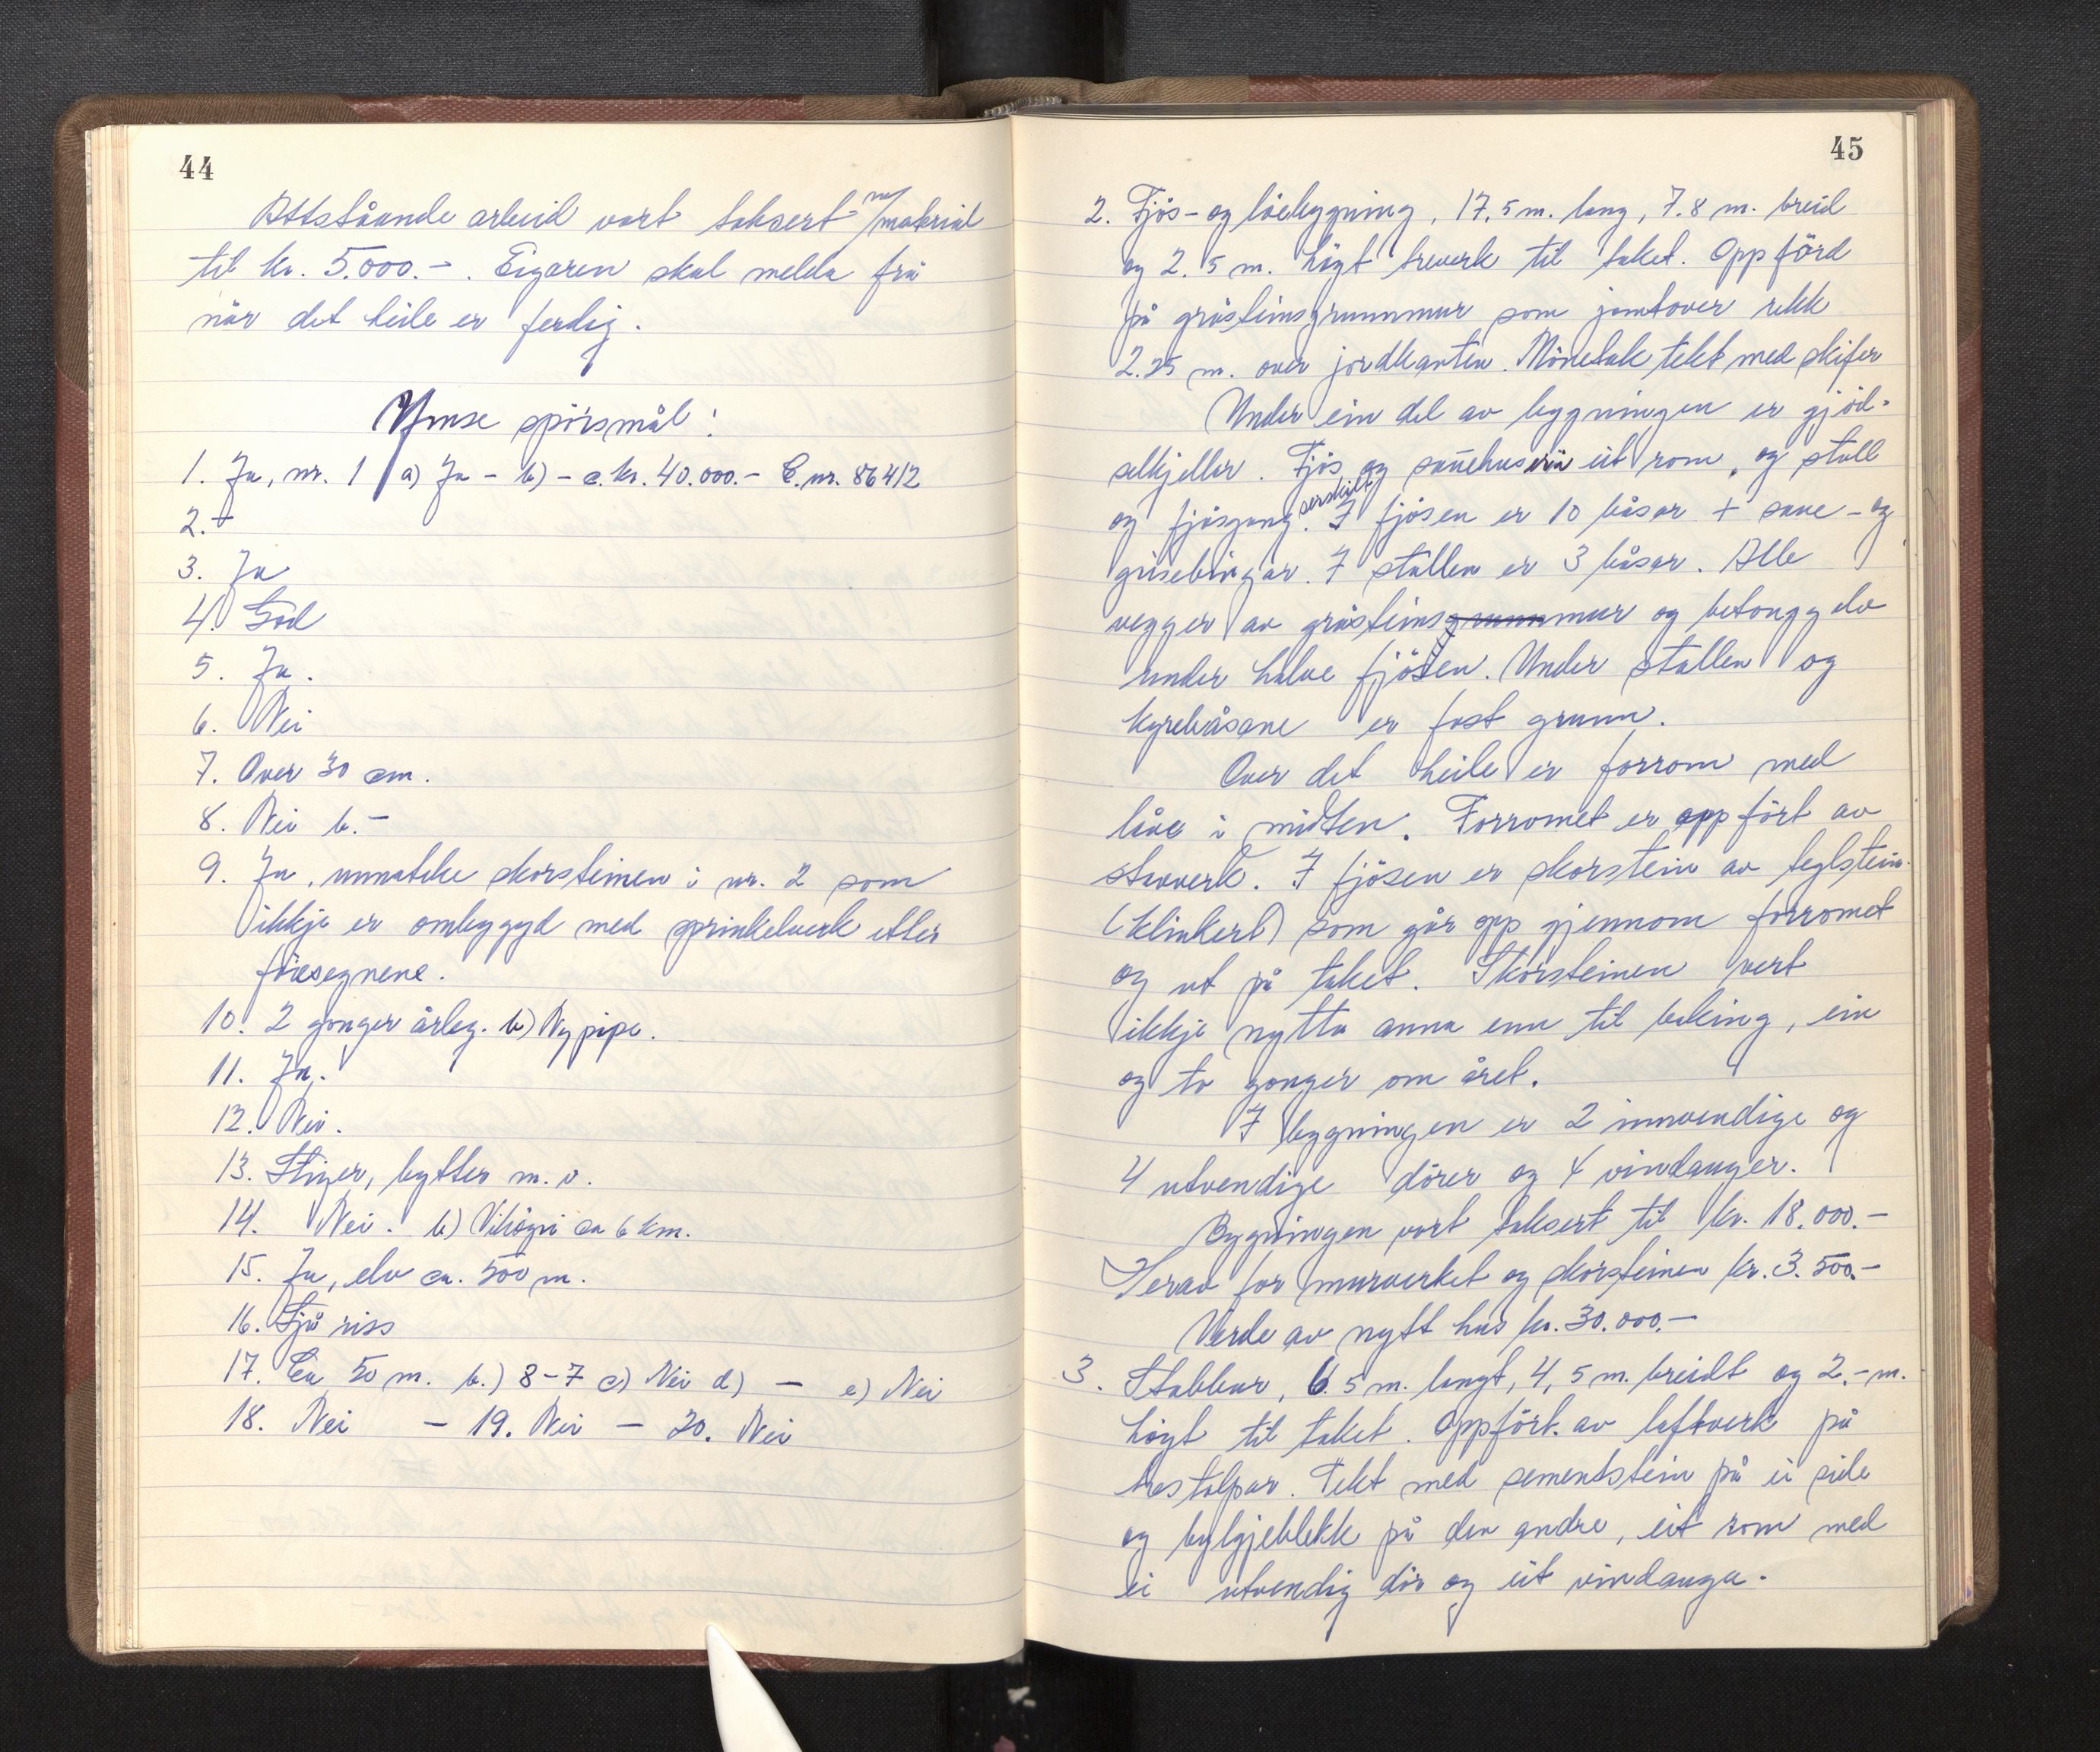 44
Attståande arbeid vart taksert m/material
til kr. 5.000.-. Eigaren skal melda frå
når det heile er ferdig.
Ymse spörsmål:
1. Ja, nr. 1 a) Ja - b) - c. kr. 40.000.- C. nr. 86412
2. -
3. Ja
4. God
5. Ja.
6. Nei
7. Over 30 cm.
8. Nei b. -
9. Ja, unnateke skorsteinen i nr. 2 som
ikkje er ombyggyd med sprinkelverk etter
föresegnene.
10. 2 gonger årleg. b) Ny pipe.
11. Ja.
12. Nei.
13. Stiger, bytter m. v.
14. Nei. b) Viköyri ca 6 km.
15. Ja, elv ca. 500 m.
16. Sjå riss
17. Ca 50 m. b.) 8-7 c) Nei d) - e) Nei
18. Nei - 19. Nei - 20. Nei
45
2. Fjös- og löebygning, 17.5 m. lang, 7.8 m. breid
og 2.5 m. högt treverk til taket. Oppförd
på gråsteinsgrunnmur som jamtover rekk
2.25 m. over jordkanten. Mönetak tekt med skifer
Under ein del av bygningen er gjöd-
selkjellar. Fjös og sauehus i eit rom, og stall
og fjösgang serskilt. I fjösen er 10 båsar + saue- og
grisebingar. I stallen er 3 båsar. Alle
vegger av gråsteinsgrunnmur og betonggolv
under halve fjösen. Under stallen og
kyrebåsane er fast grunn.
Over det heile er forrom med
låve i midten. Forromet er oppfört av
stavverk. I fjösen er skorstein av teglstein
(klinkert) som går opp gjennom forromet
og ut på taket. Skorsteinen vert
ikkje nytta anna enn til baking, ein
og to gonger om året.
I bygningen er 2 innvendige og
4 utvendige dörer og 4 vindauger.
Bygningen vart taksert til kr. 18.000.-
Herav for murverket og skorsteinen kr. 3.500.-
Verde av nytt hus kr. 30.000.-
3. Stabbur, 6.5 m. langt, 4,5 m. breidt og 2.- m.
högt til taket. Oppfört av laftverk på
trestolpar. Tekt med sementstein på ei side
og bylgjeblekk på den andre, eit rom med
ei utvendig dör og eit vindauga.